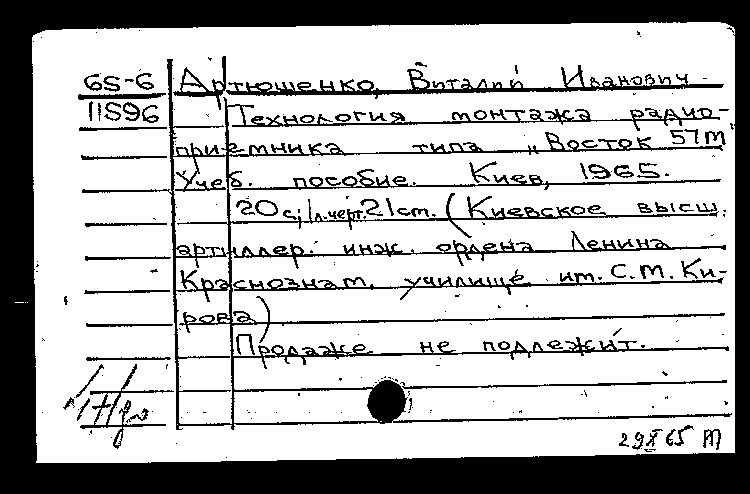 65-6 Артюшенко, Виталий Иванович
11596 Технология монтажа радио-
приемника типа „Восток 57м"
Учеб. пособие. Киев, 1965.
20 с., 1 л. черт. 21 cm. (Киевское высш.
артиллер. инж. ордена Ленина
Краснознам. училище им. С. М. Ки-
рова)
Продаже не подлежит.
29 X 65 м